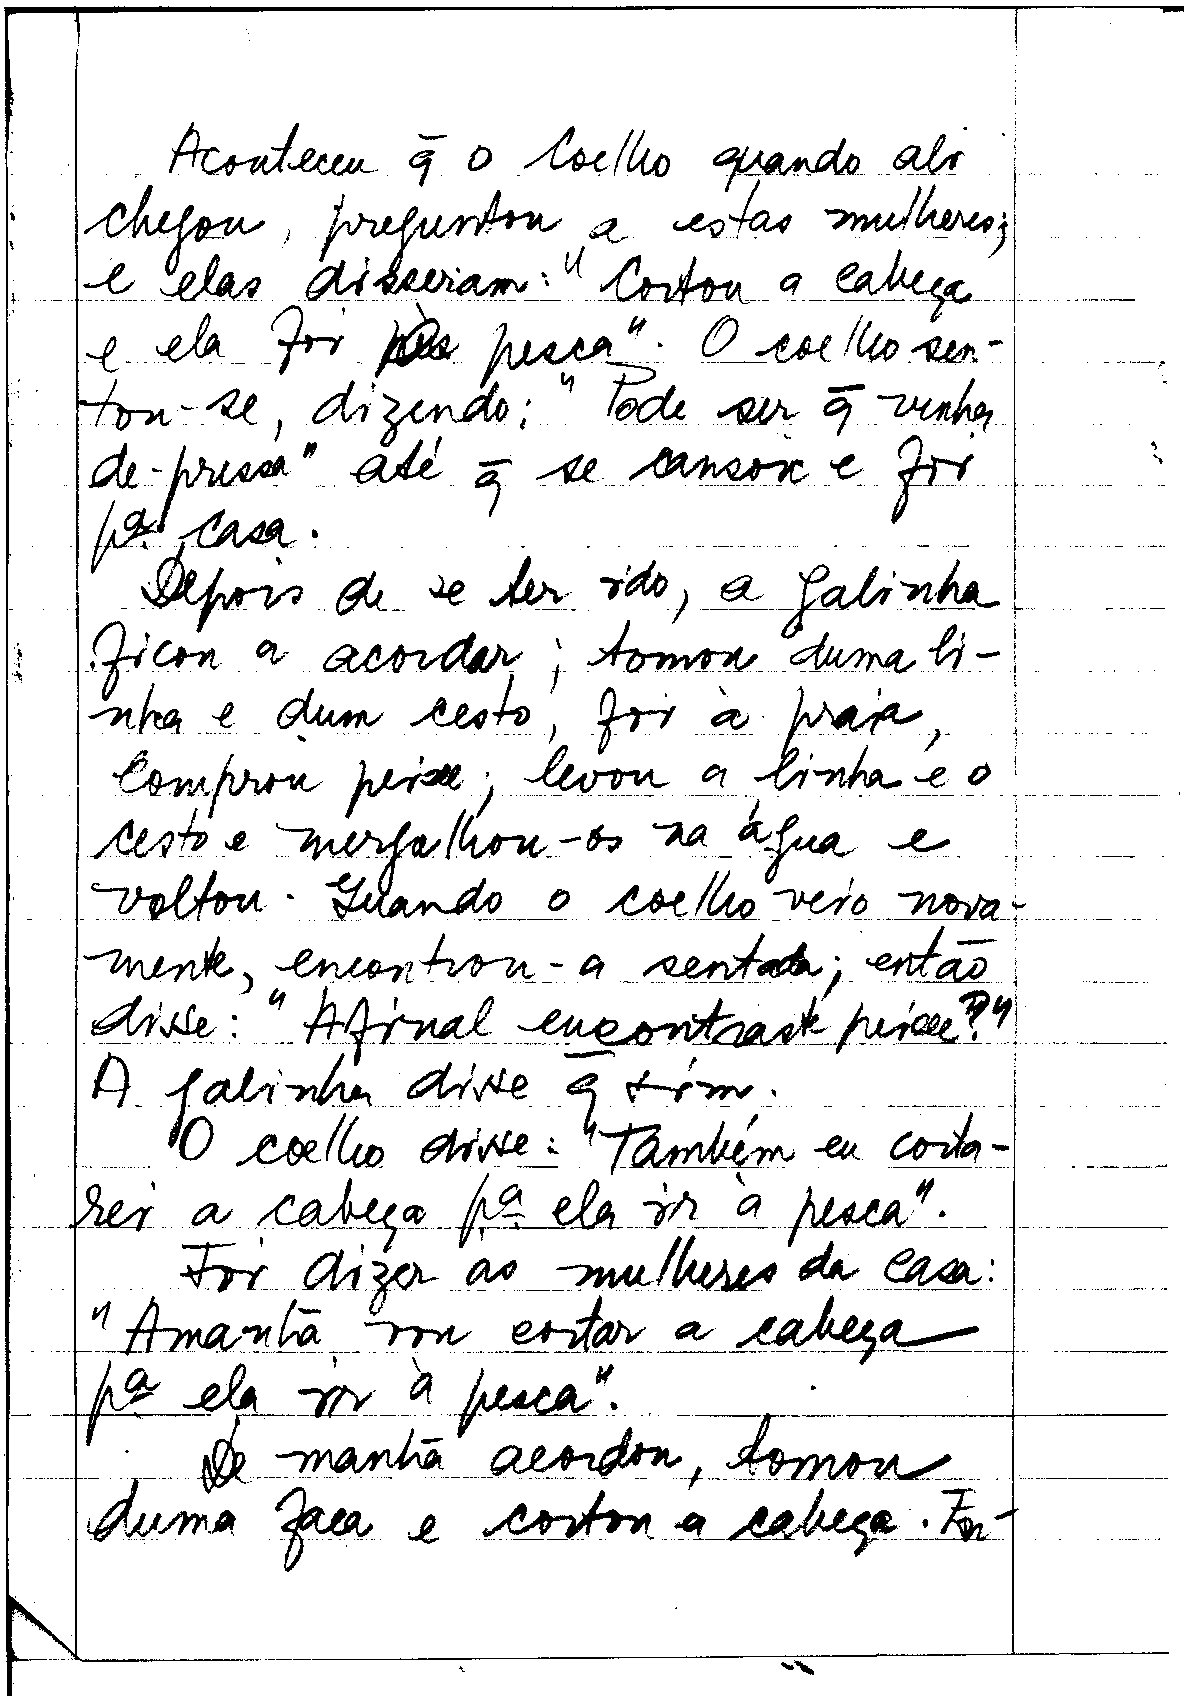 Aconteceu q̄ o Coelho quando ali
chegou, preguntou a estas mulheres;
e elas disseram: "Cortou a cabeça
e ela foi à pesca". O coelho sen-
tou-se, dizendo: "Pode ser q̄ venha
de-pressa" até q̄ se cansou e foi
pª casa.
Depois de se ter ido, a galinha
ficou a acordar; tomou duma li-
nha e dum cesto, foi à praia,
comprou peixe; levou a linha e o
cesto e mergulhou-os na água e
voltou. Quando o coelho veio nova-
mente, encontrou-a sentada; então
disse: "Afinal encontraste peixe?"
A galinha disse q̄ sim.
O coelho disse: "Também eu corta-
rei a cabeça pª ela ir à pesca".
Foi dizer às mulheres da casa:
"Amanhã vou cortar a cabeça
pª ela ir à pesca".
De manhã acordou, tomou
duma faca e cortou a cabeça. Fi-